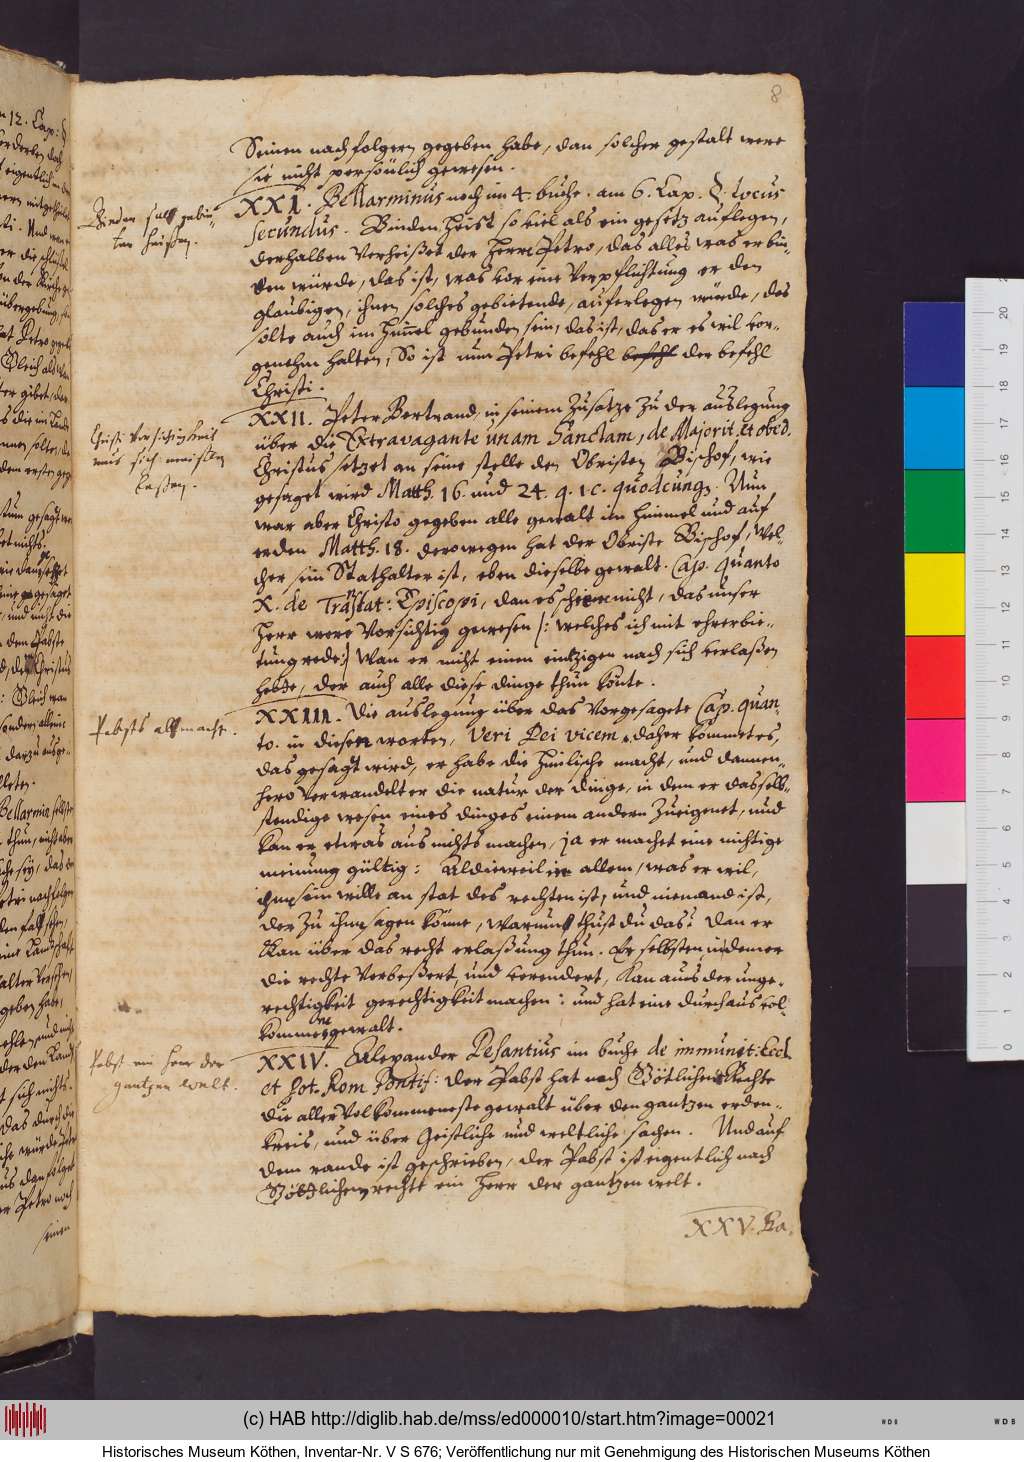 8
Seinen nachfolgern gegeben habe, dan solcher gestalt were
sie nicht persönlich gewesen.
XXI. Bellarminus noch im 4. buche. am 6. Cap. §. Locus
secundus. Binden heist so viel als ein gesetz auflegen,
derhalben verheißet der Herr Petro, das alles was er bin-
den würde, das ist, was vor eine Verpflichtung er den
glaubigen, ihnen solches gebietende, auferlegen würde, das
solte auch im himel gebunden sein, das ist, das er es wil vor-
genehm halten, So ist nun Petri befehl der befehl
Christi.
XXII. Peter Bertrand, in seinem Zusatze zu der auslegung
über die Extravagante unam Sanctam, de Majorit. et obed.
Christus setzet an seine stelle den Obristen Bischof, wie
gesaget wird Matth. 16. und 24. q. 1 c. quodcunq3. Nun
war aber Christo gegeben alle gewalt im himmel und auf
erden Matth. 18. derowegen hat der Obriste Bischof, wel-
cher sein Stathalter ist, eben dieselbe gewalt. Cap. quanto
X. de Translat: Episcopi, dan es schiene nicht, das unser
Herr were Vorsichtig gewesen /: welches ich mit ehrerbie-
tung rede:/ Wan er nicht einen eintzigen nach sich verlaßen
hette, der auch alle diese dinge thun könte.
XXIII. Die auslegung über das Vorgesagete Cap. quan
to. in diesen worten, Veri Dei vicem. daher kommet es,
das gesagt wird, er habe die himlische macht, und dannen-
hero verwandelt er die natur der dinge, in dem er das selb-
stendige wesen eines dinges einem andern Zueignet, und
kan er etwas aus nichts machen, ja er machet eine nichtige
meinung gültig: Aldieweil in allem, was er wil,
ihm sein wille an stat des rechten ist, und niemand ist,
der zu ihm sagen könne, Warumb thust du das? dan er
kan über das recht erlaßung thun. Er selbsten, indem er
die rechte verbeßert, und verendert, kan aus der unge-
rechtigkeit gerechtigkeit machen: und hat eine durchaus vol
kommene gewalt.
XXIV. Alexander Pesantius im buche de immunit: Eccl.
et pot. Rom Pontif: der Pabst hat nach Götlichem Rechte
die aller Volkommeneste gewalt über den gantzen erden-
kreis, und über Geistliche und weltliche sachen. Und auf
dem rande ist geschrieben, der Pabst ist eigentlich nach
Göttlichem rechte ein Herr der gantzen welt.
XXV. La.
Binden sol gebie-
ten heißen.
Christi Vorsichtigkeit
mus sich meistern
laßen.
Pabsts allmacht.
Pabst ein Herr der
gantzen welt.
(c) HAB http://diglib.hab.de/mss/ed000010/start.htm?image=00021
Historisches Museum Köthen, Inventar-Nr. V S 676; Veröffentlichung nur mit Genehmigung des Historischen Museums Köthen